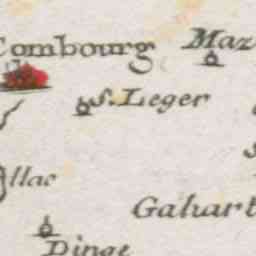 Combourg
Maz
S. Leger
llac
Galuart
Dinge